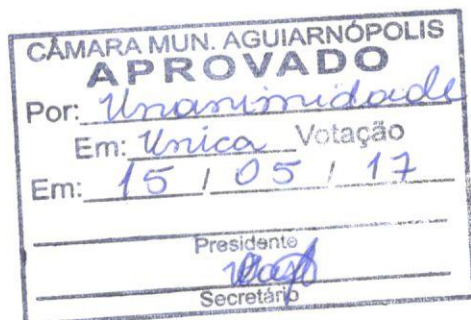 CÂMARA MUN. AGUIARNÓPOLIS
APROVADO
Por: Unanimidade
Em: Unica Votação
Em: 15 / 05 / 17
Presidente
Secretário